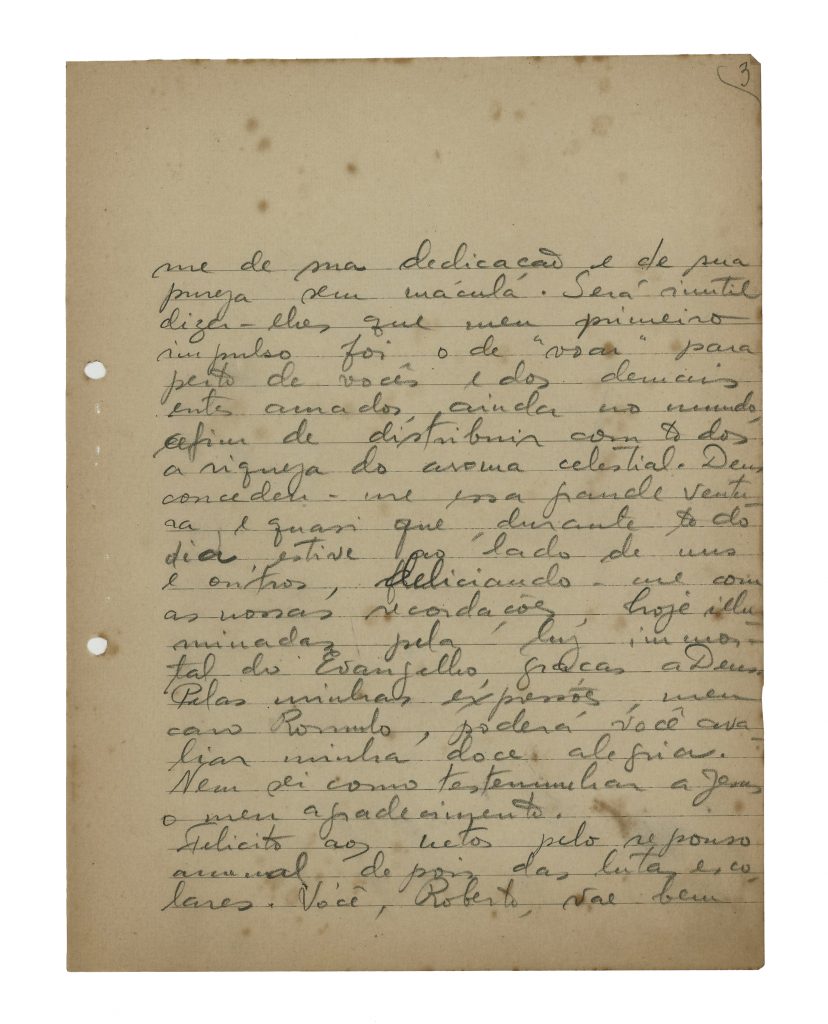 3
me de sua dedicação e de sua
pureza sem mácula. Será inutil
dizer-lhes que meu primeiro
impulso foi o de "voar" para
perto de vocês e dos demais
entes amados, ainda no mundo,
afim de distribuir com todos
a riqueza do aroma celestial. Deus
concedeu-me essa grande ventu-
ra, e quasi que durante todo
dia estive ao lado de uns
e outros, feliciando-me com
as nossas recordações, hoje illu-
minadas pela luz immor-
tal do Evangelho, graças a Deus.
Pelas minhas expressões, meu
caro Romulo, poderá você ava-
liar minha doce alegria.
Nem sei como testemunhar a Jesus
o meu agradecimento.
Felicito aos netos pelo repouso
annual depois das lutas esco-
lares. Você, Roberto, vae bem